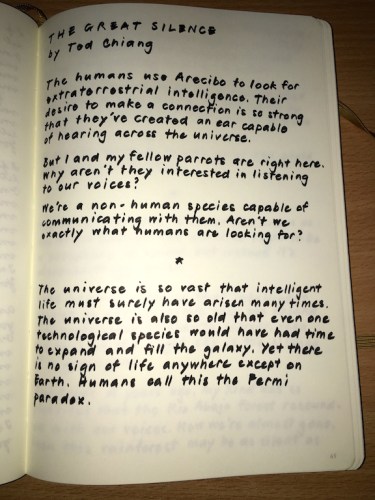 THE GREAT SILENCE
by Ted Chiang
The humans use Arecibo to look for
extraterrestrial intelligence. Their
desire to make a connection is so strong
that they've created an ear capable
of hearing across the universe.
But I and my fellow parrots are right here.
Why aren't they interested in listening
to our voices?
We're a non-human species capable of
communicating with them. Aren't we
exactly what humans are looking for?
*
The universe is so vast that intelligent
life must surely have arisen many times.
The universe is also so old that even one
technological species would have had time
to expand and fill the galaxy. Yet there
is no sign of life anywhere except on
Earth. Humans call this the Fermi
paradox.